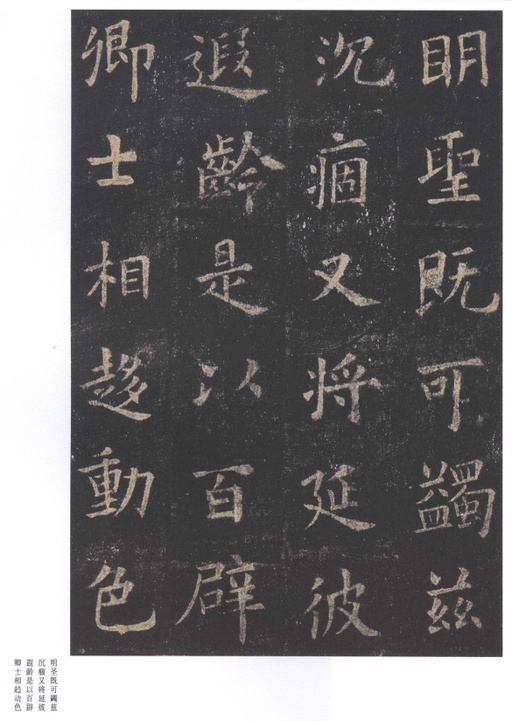 眀聖既可蠲兹
沉痼又将延彼
遐齡是以百辟
卿士相趍動色
明圣既可蠲兹
沉痼又将延彼
遐龄是以百辟
卿士相趋动色